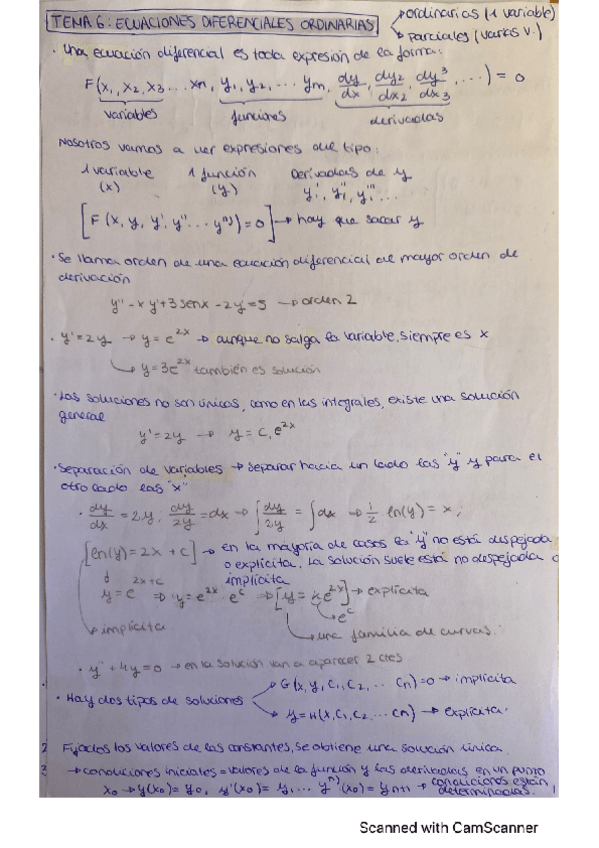 TEMA 6: ECUACIONES DIFERENCIALES ORDINARIAS → ordinarias (1 variable)
→ parciales (varias v.)
· Una ecuación diferencial es toda expresión de la forma:
F(x₁, x₂, x₃ ... xn, y₁, y₂, ... ym, dy/dx, dy2/dx2, dy³/dx3, ...) = 0
variables funciones derivadas
Nosotros vamos a ver expresiones del tipo:
1 variable 1 función Derivadas de y
(x) (y) y', y'', y''', ...
[F (x, y, y', y'' ... yⁿ⁾) = 0] → hay que sacar y
· Se llama orden de una ecuación diferencial al mayor orden de
derivación
y'' - x y' + 3 senx - 2y = 5 → orden 2
· y' = 2y → y = e^2x → aunque no salga la variable, siempre es x
→ y = 3e^2x también es solución
· Las soluciones no son únicas, como en las integrales, existe una solución
general
y' = 2y → y = C, e^2x
· Separación de variables → separar hacia un lado las "y" y para el
otro lado las "x"
· dy/dx = 2y; dy/2y = dx → ∫ dy/2y = ∫ dx → 1/2 ln(y) = x;
[ln(y) = 2x + c] → en la mayoría de casos la "y" no está despejada
o explícita. La solución suele está no despejada o
implícita
y = e^2x+c ⇒ y = e^2x · e^c → [y = k e^2x] → explícita
→ e^c
→ implícita → una familia de curvas.
· y'' + 4y = 0 → en la solución van a aparecer 2 ctes
→ G(x, y, C₁, C₂, ... Cn) = 0 → implícita
· Hay dos tipos de soluciones
→ y = H(x, C₁, C₂ ... Cn) → explícita.
Fijados los valores de las constantes, se obtiene una solución única.
→ condiciones iniciales = valores de la función y las derivadas en un punto
x₀ → y(x₀) = y₀, y'(x₀) = y₁ ... yⁿ⁾(x₀) = yn+1 → condiciones están
determinadas.
Scanned with CamScanner